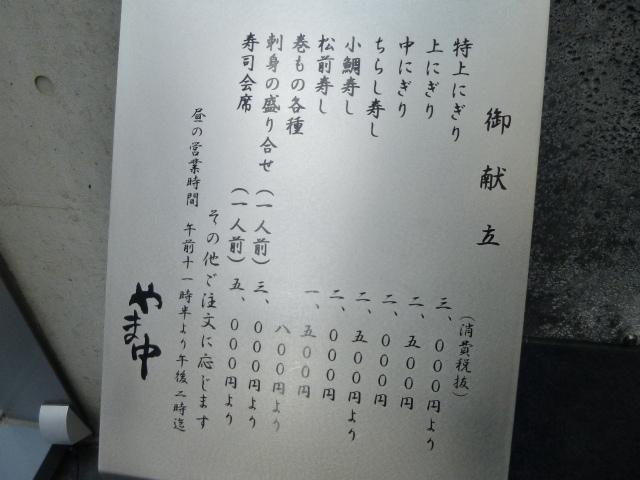 御献立
（消費税抜）
特上にぎり 三、〇〇〇円より
上にぎり 二、五〇〇円
中にぎり 二、〇〇〇円
ちらし寿し 二、五〇〇円より
小鯛寿し 二、〇〇〇円
松前寿し 一、五〇〇円
巻もの各種 八〇〇円より
刺身の盛り合せ（一人前）三、〇〇〇円より
寿司会席（一人前）五、〇〇〇円より
その他ご注文に応じます
昼の営業時間 午前十一時半より午後二時迄
やま中